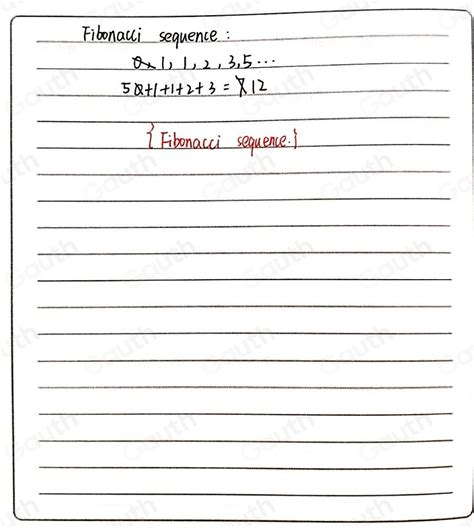 Fibonacci sequence :
0, 1, 1, 2, 3, 5 ...
5 0+1+1+2+3 = 7 12
{ Fibonacci sequence. }
Gauth